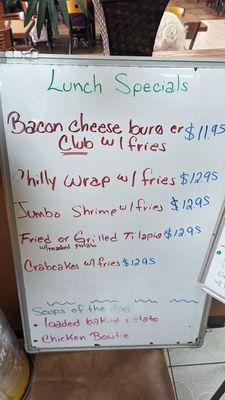 Lunch Specials
Bacon cheese burg er $11.95
Club w/ fries
Philly Wrap w/ fries $12.95
Jumbo Shrimp w/ fries $12.95
Fried or Grilled Tilapia $12.95
w/mashed potato
Crabcakes w/ fries $12.95
Soups of the day
• loaded baked potato
• Chicken Bowtie